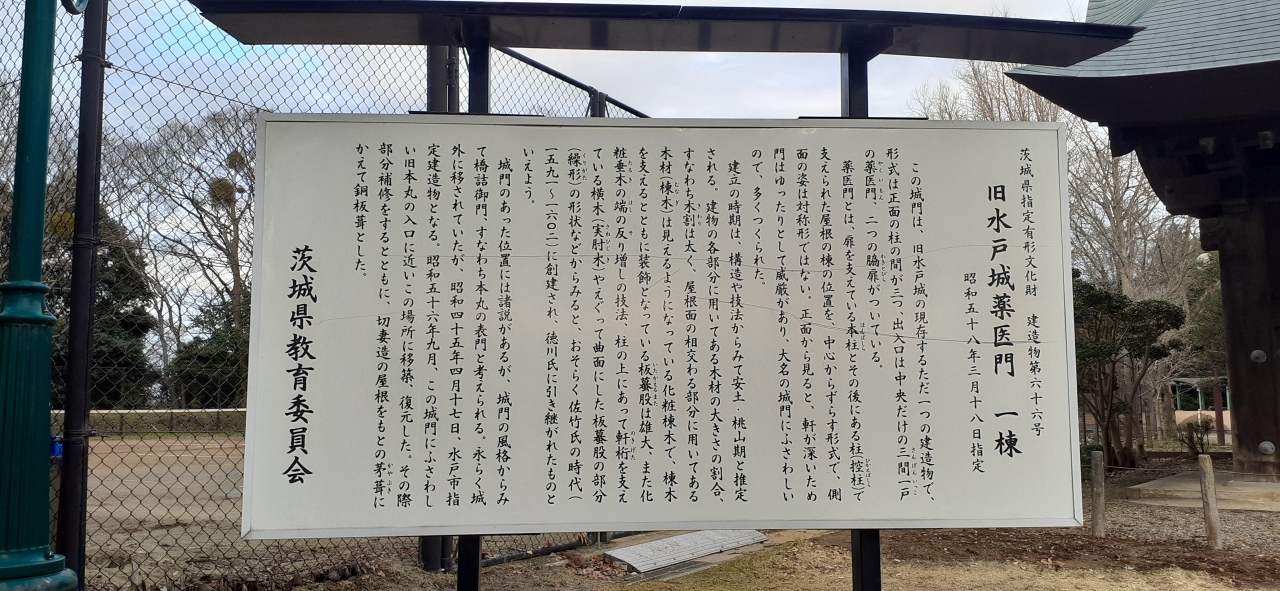 茨城県指定有形文化財　建造物第六十六号
旧水戸城薬医門　一棟
昭和五十八年三月十八日指定
この城門は、旧水戸城の現存するただ一つの建造物で、
形式は正面の柱の間が三つ、出入口は中央だけの三間一戸
の薬医門、二つの脇扉がついている。
薬医門とは、扉を支えている本柱とその後にある柱(控柱)で
支えられた屋根の棟の位置を、中心からずらす形式で、側
面の姿は対称形ではない。正面から見ると、軒が深いため
門はゆったりとして威厳があり、大名の城門にふさわしい
ので、多くつくられた。
建立の時期は、構造や技法からみて安土・桃山期と推定
される。建物の各部分に用いてある木材の大きさの割合、
すなわち木割は太く、屋根面の相交わる部分に用いてある
木材(棟木)は見えるようになっている化粧棟木で、棟木
を支えるとともに装飾となっている板蟇股は雄大、また化
粧垂木の端の反り増しの技法、柱の上にあって軒桁を支え
ている横木(実肘木)やえぐって曲面にした板蟇股の部分
(繰形)の形状などからみると、おそらく佐竹氏の時代(
一五九一〜一六〇二)に創建され、徳川氏に引き継がれたものと
いえよう。
城門のあった位置には諸説があるが、城門の風格からみ
て橋詰御門、すなわち本丸の表門と考えられる。永らく城
外に移されていたが、昭和四十五年四月十七日、水戸市指
定建造物となる。昭和五十六年九月、この城門にふさわし
い旧本丸の入口に近いこの場所に移築、復元した。その際
部分補修をするとともに、切妻造の屋根をもとの茅葺に
かえて銅板葺とした。
茨城県教育委員会